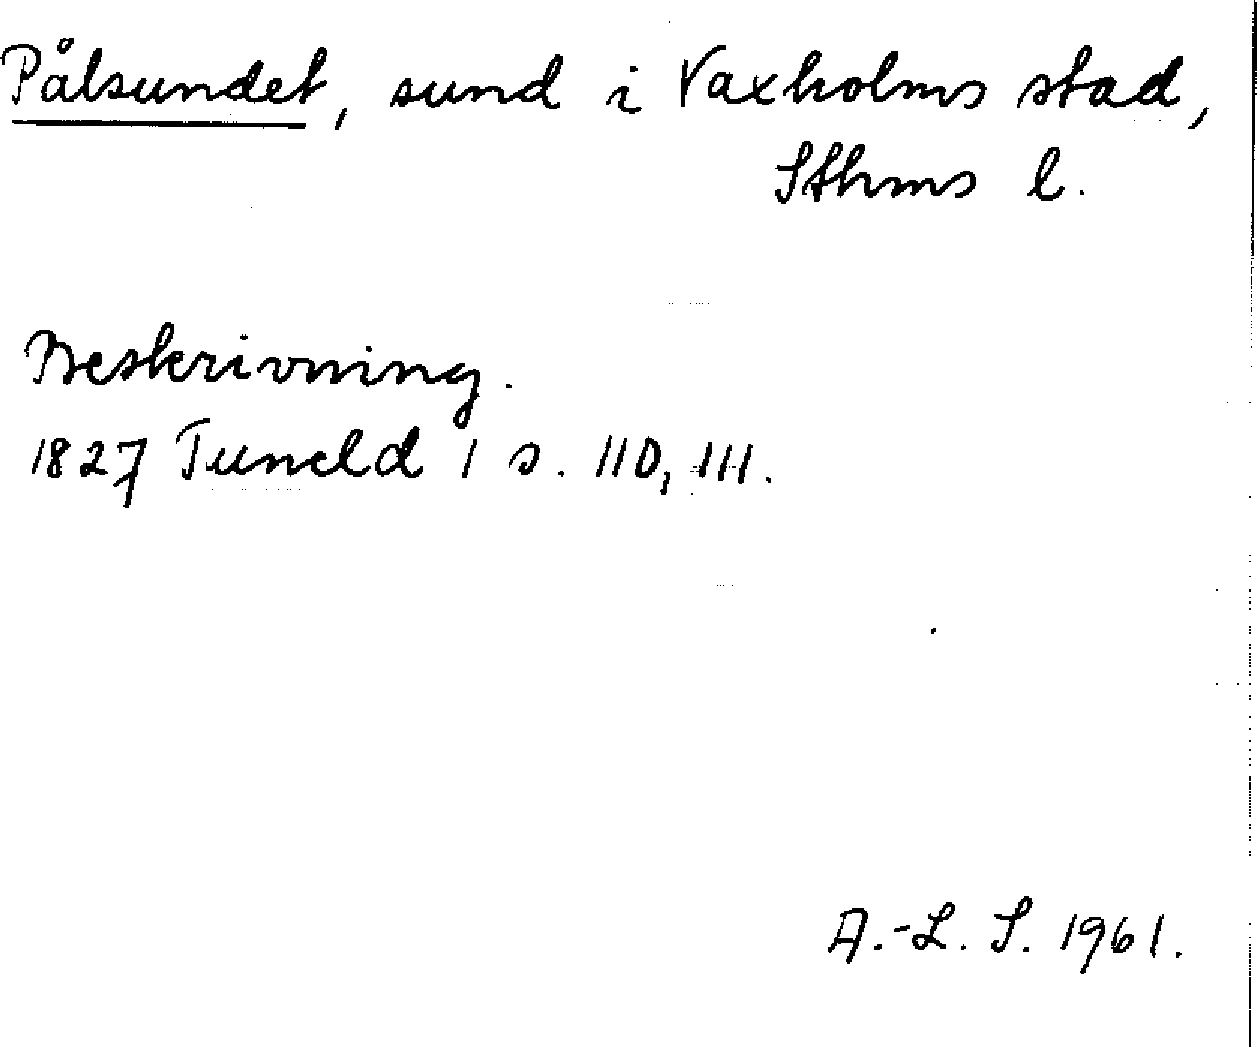 Pålsundet, sund i Vaxholms stad,
Sthms l.
Beskrivning.
1827 Tuneld 1 s. 110, 111.
A.-L. S. 1961.